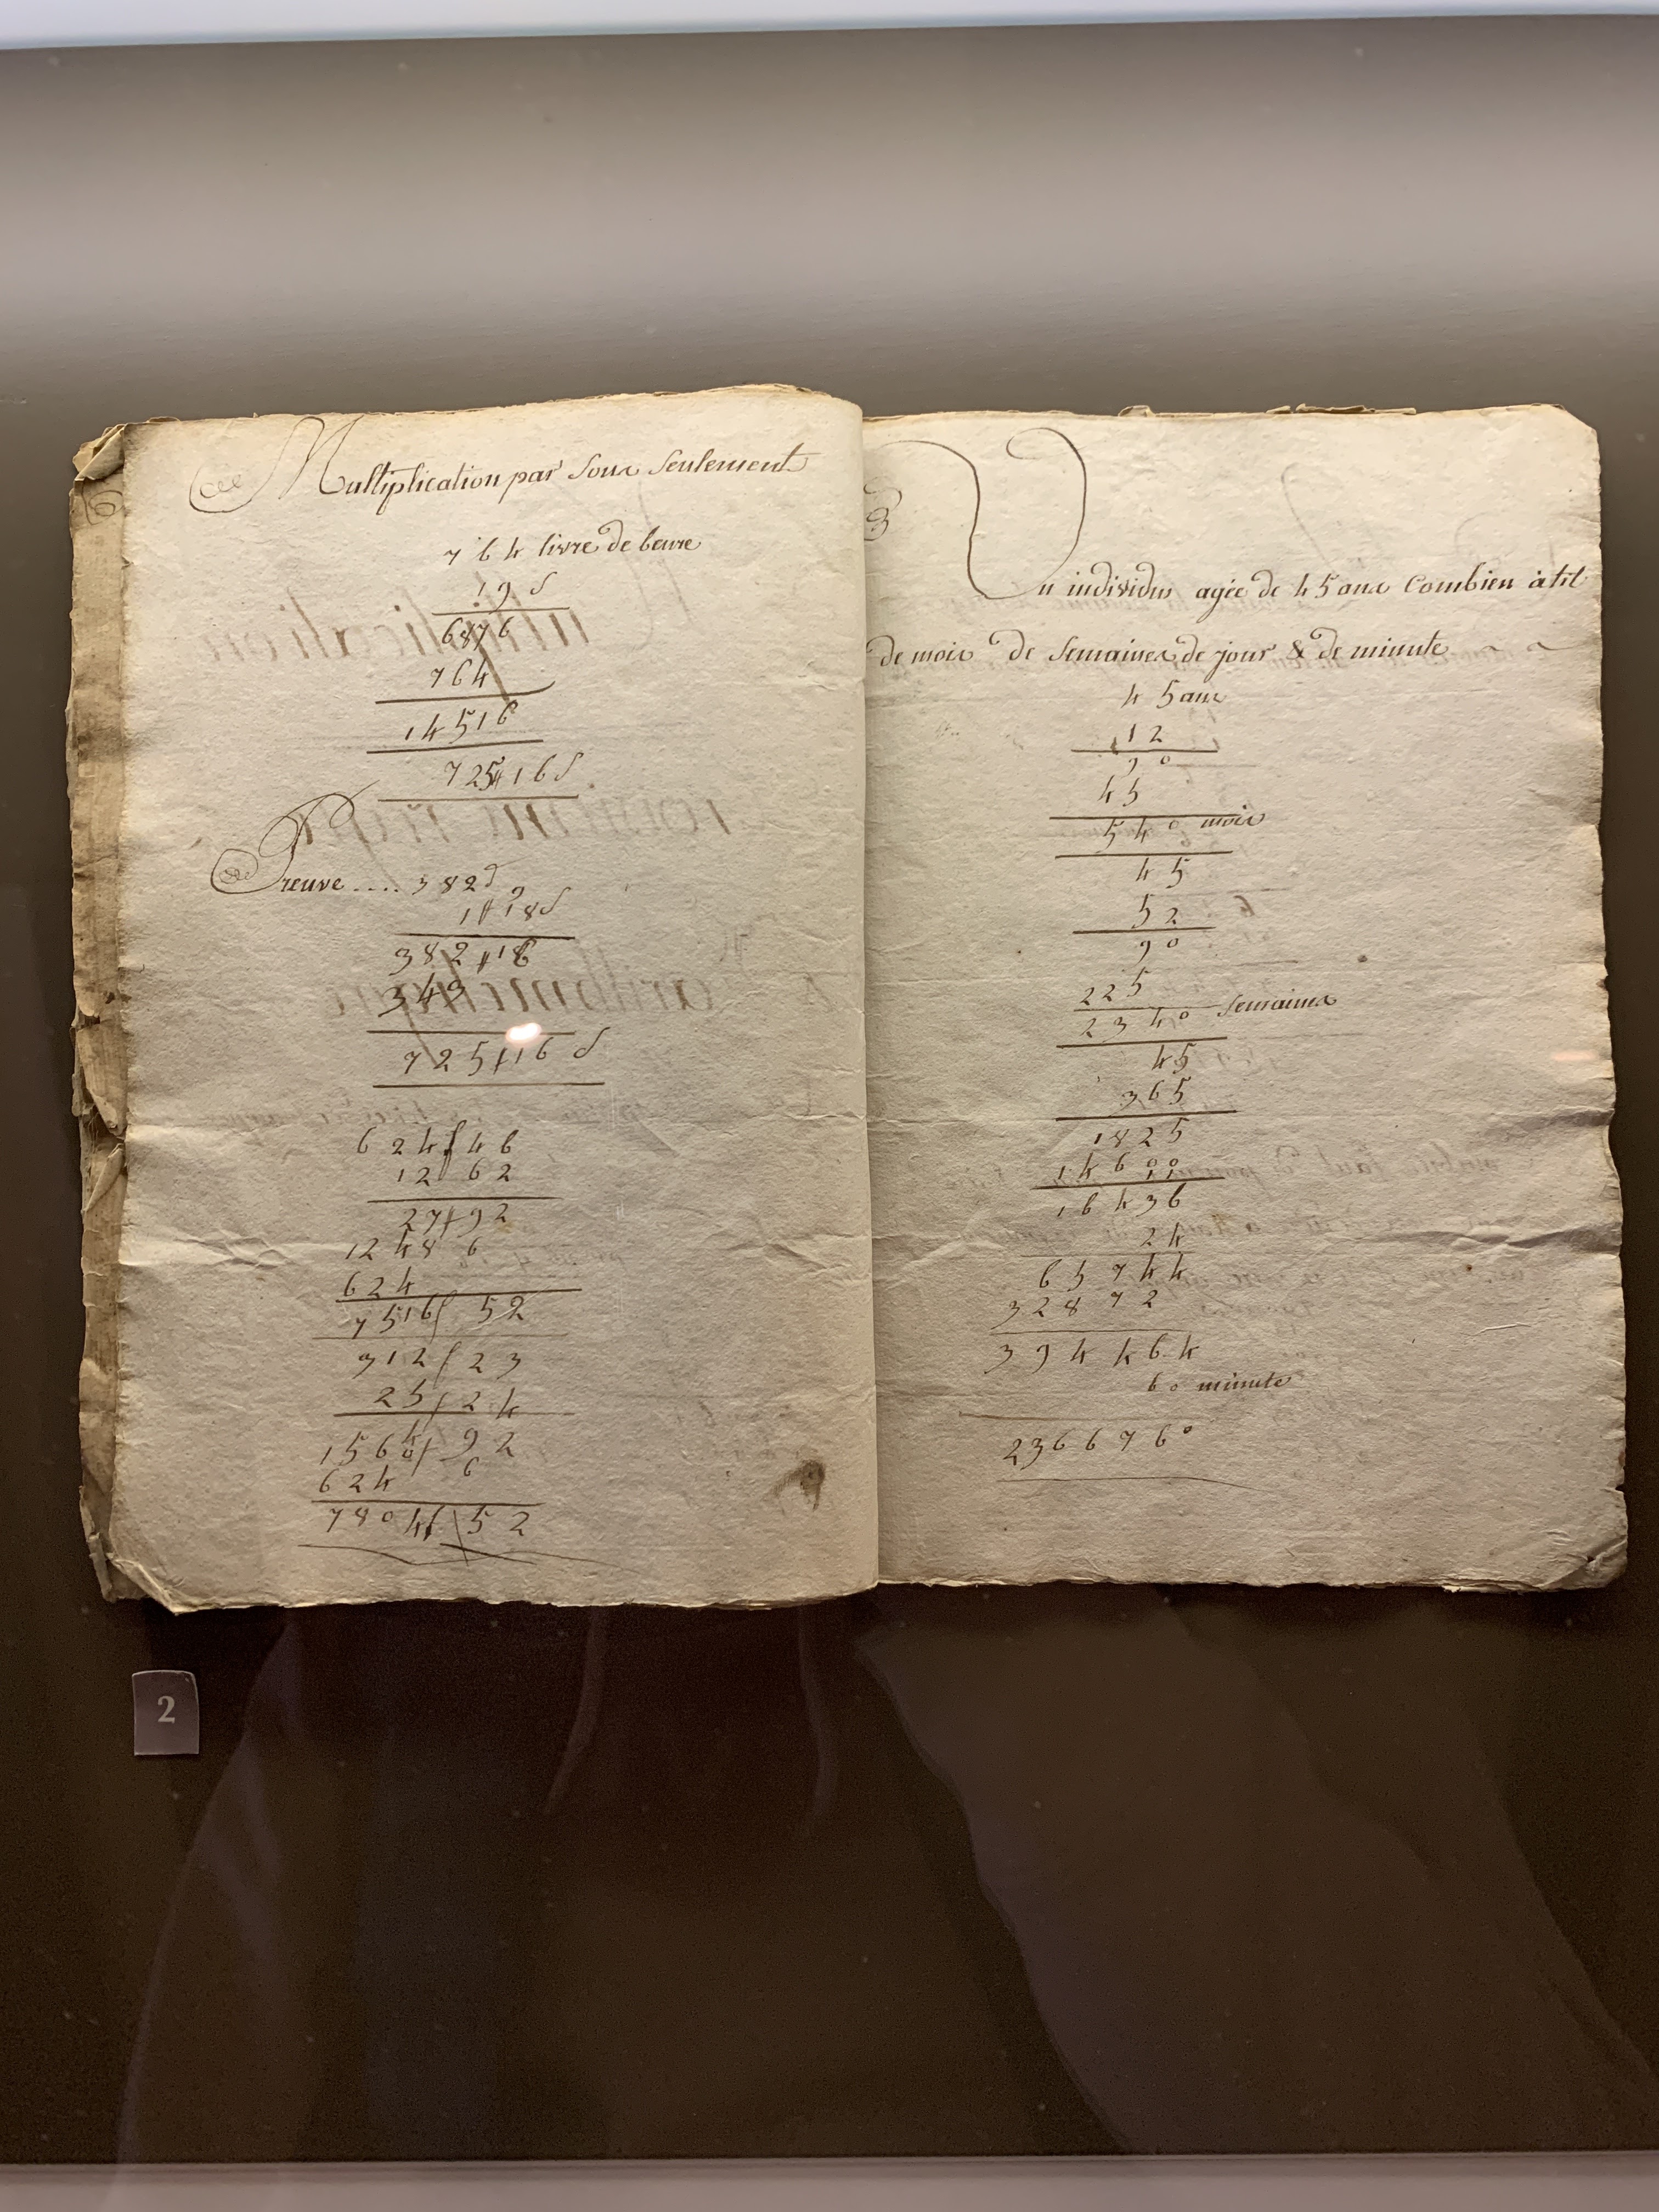 Multiplication par Soux Seulement
764 livre de beure
19 s
6876
764
14516
725 # 16 s
Preuve .... 382 d
1 # 18 s
382 # 18
343
725 # 16 s
624 46
12 62
27 92
1248 6
624
7516 52
312 23
25 24
156 92
624 6
7804 52
Un individus agée de 45 ans Combien à til
de mois de Semaines de jour & de minute
45 ans
12
90
45
540 mois
45
52
90
225
2340 Semaines
45
365
1825
14600
11
16436
24
65744
32872
394464
60 minute
2366760
2